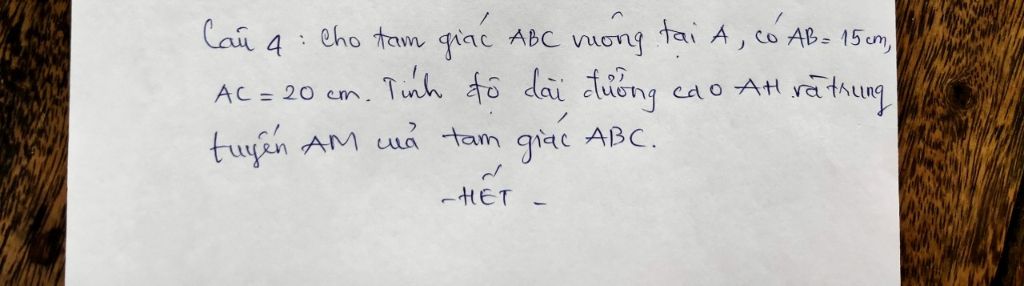 Câu 4 : Cho tam giác ABC vuông tại A, có AB = 15 cm,
AC = 20 cm. Tính độ dài đường cao AH và trung
tuyến AM của tam giác ABC.
- HẾT -